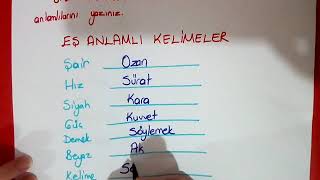 anlamlılarını yazınız.
EŞ ANLAMLI KELİMELER
Şair Ozan
Hız Sürat
Siyah Kara
Güç Kuvvet
Demek Söylemek
Beyaz Ak
Kelime